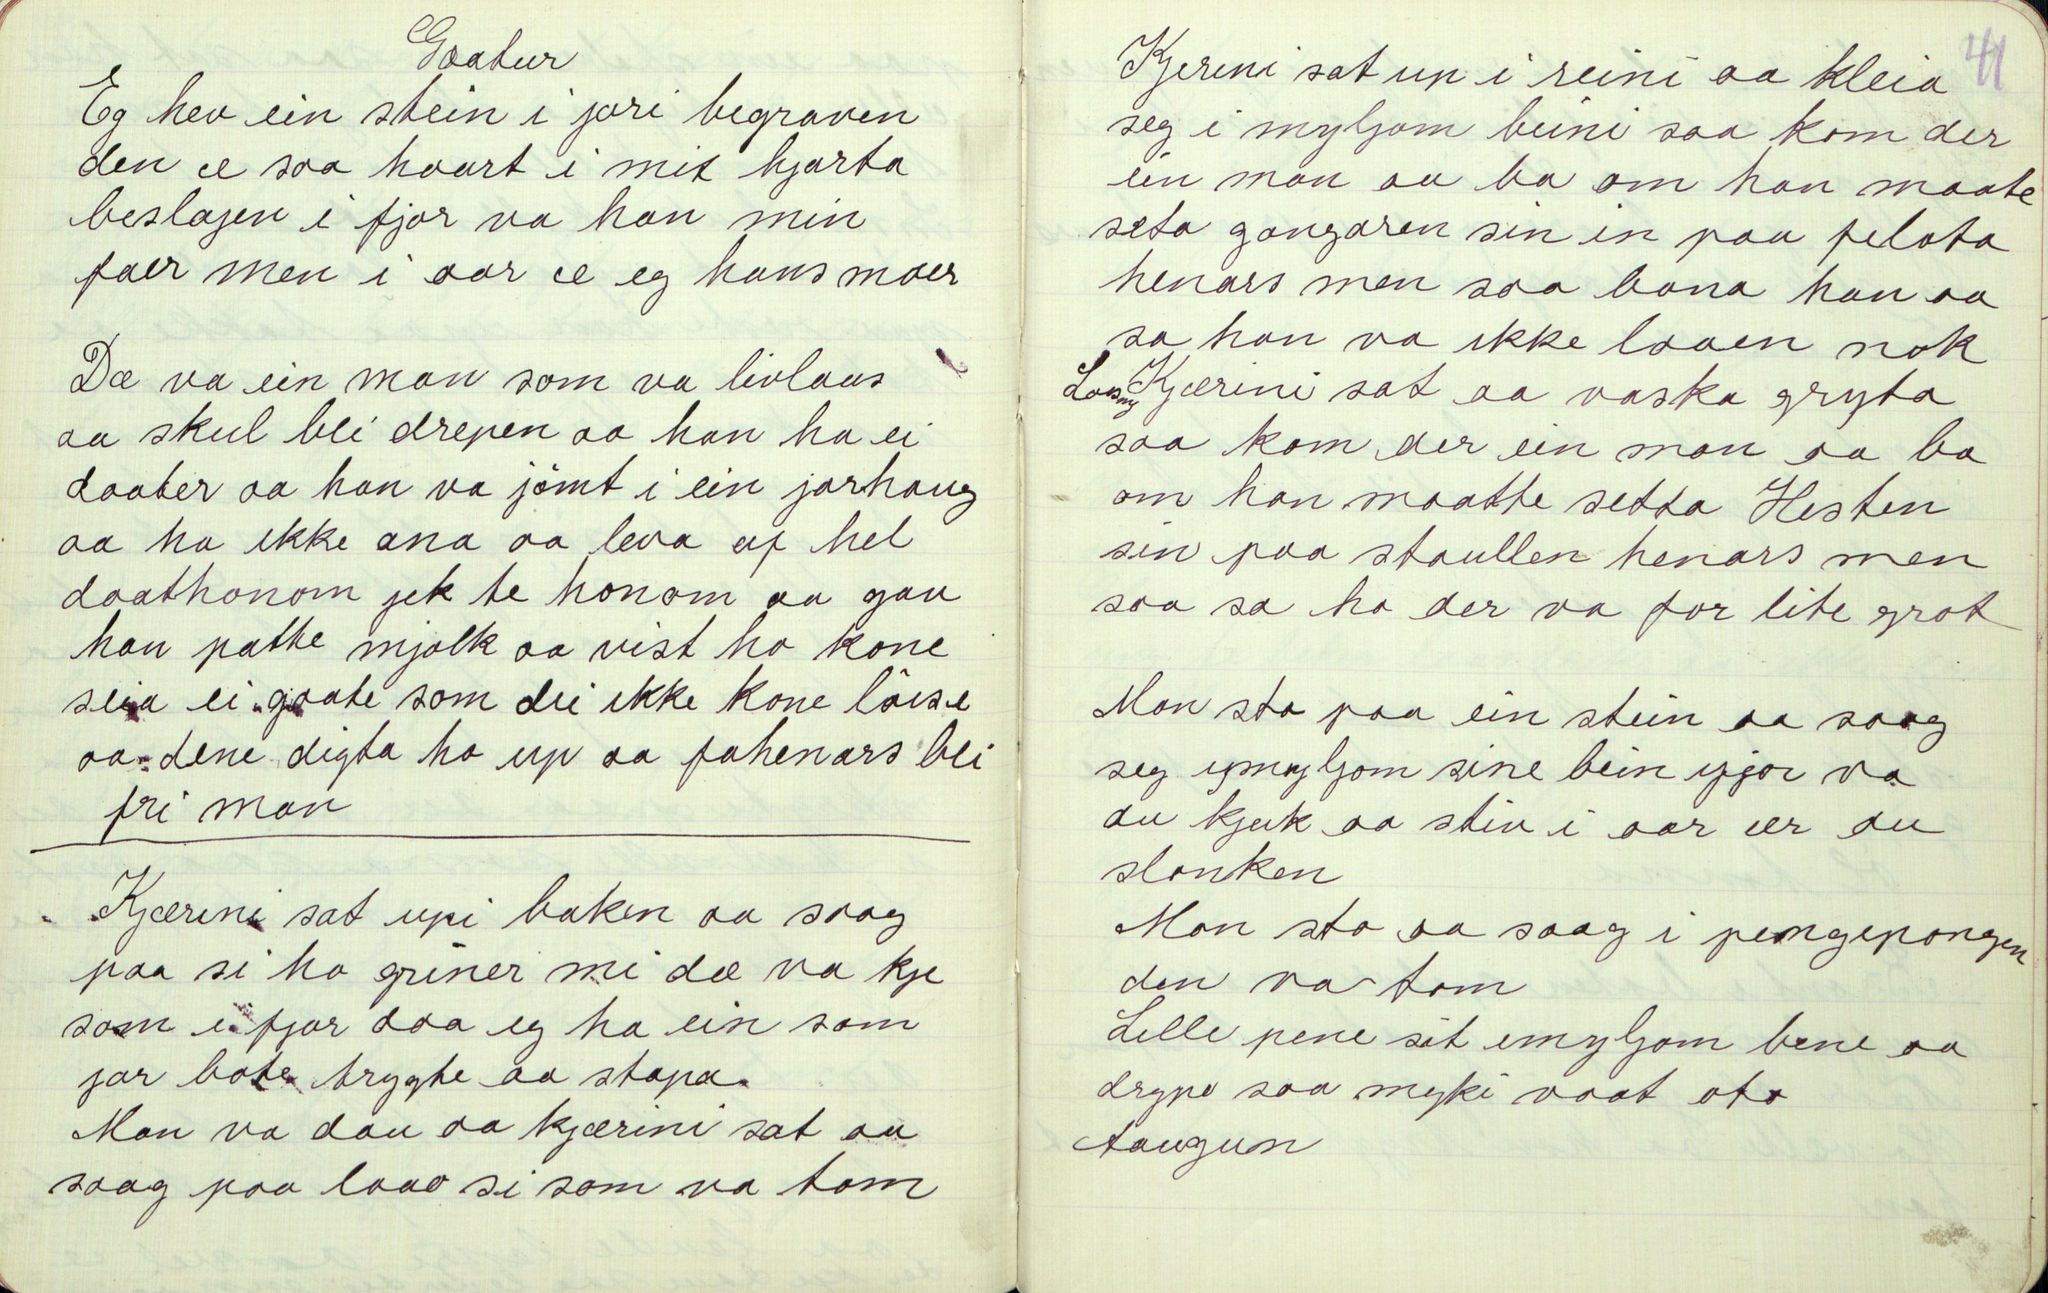 Gaatur
Eg hev ein stein i jori begraven
den æ saa haart i mit hjarta
beslagen i fjor va han min
faer men i aar æ eg hans moer
Dæ va ein man som va livlaus
aa skul bli drepen aa han ha ei
daater aa han va jömt i ein jorhaug
aa ha ikke ana aa leva af hel
daathonom jek te honom aa gav
han patte mjolk aa vist ho kone
seia ei gaate som dei ikke kone löise
aa dene digta ho up aa fahenars blei
fri man
Kjærini sat upi baken aa saag
paa si ho griner mi dæ va kje
som i fjor daa eg ha ein som
jor bate trygte aa stapa
Man va dau aa kjærini sat aa
saag paa laao si som va tom
41
Kjerini sat up i reini aa kleia
seg i myljom beini saa kom der
ein man aa ba om han maate
seta gangaren sin in paa felata
henars men saa bana han aa
sa han va ikke laaen nok
Loisny Kjærini sat aa vaska gryta
saa kom der ein man aa ba
om han maatte setta Hesten
sin paa staullen henars men
saa sa ho der va for lite grat
Man sto paa ein stein aa saag
seg ymyljom sine bein ifjor va
du kjæk aa stiv i aar ær du
slonken
Man sto aa saag i pengepongen
den va tom
Lille pene sit imyljom bene aa
drype saa myki vaat ota
taugun